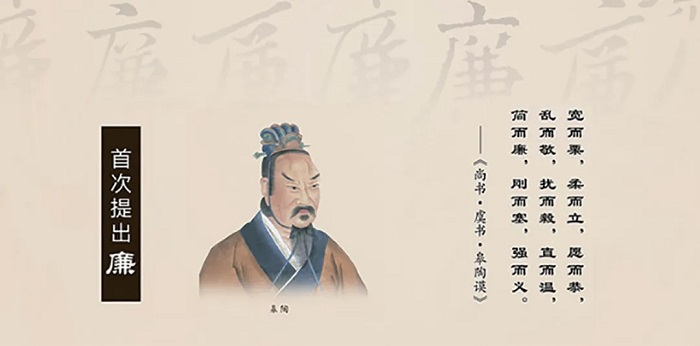 廉 廉 廉 廉 廉 廉
首次提出廉
皋陶
宽而栗，柔而立，愿而恭，
乱而敬，扰而毅，直而温，
简而廉，刚而塞，强而义。
——《尚书·虞书·皋陶谟》